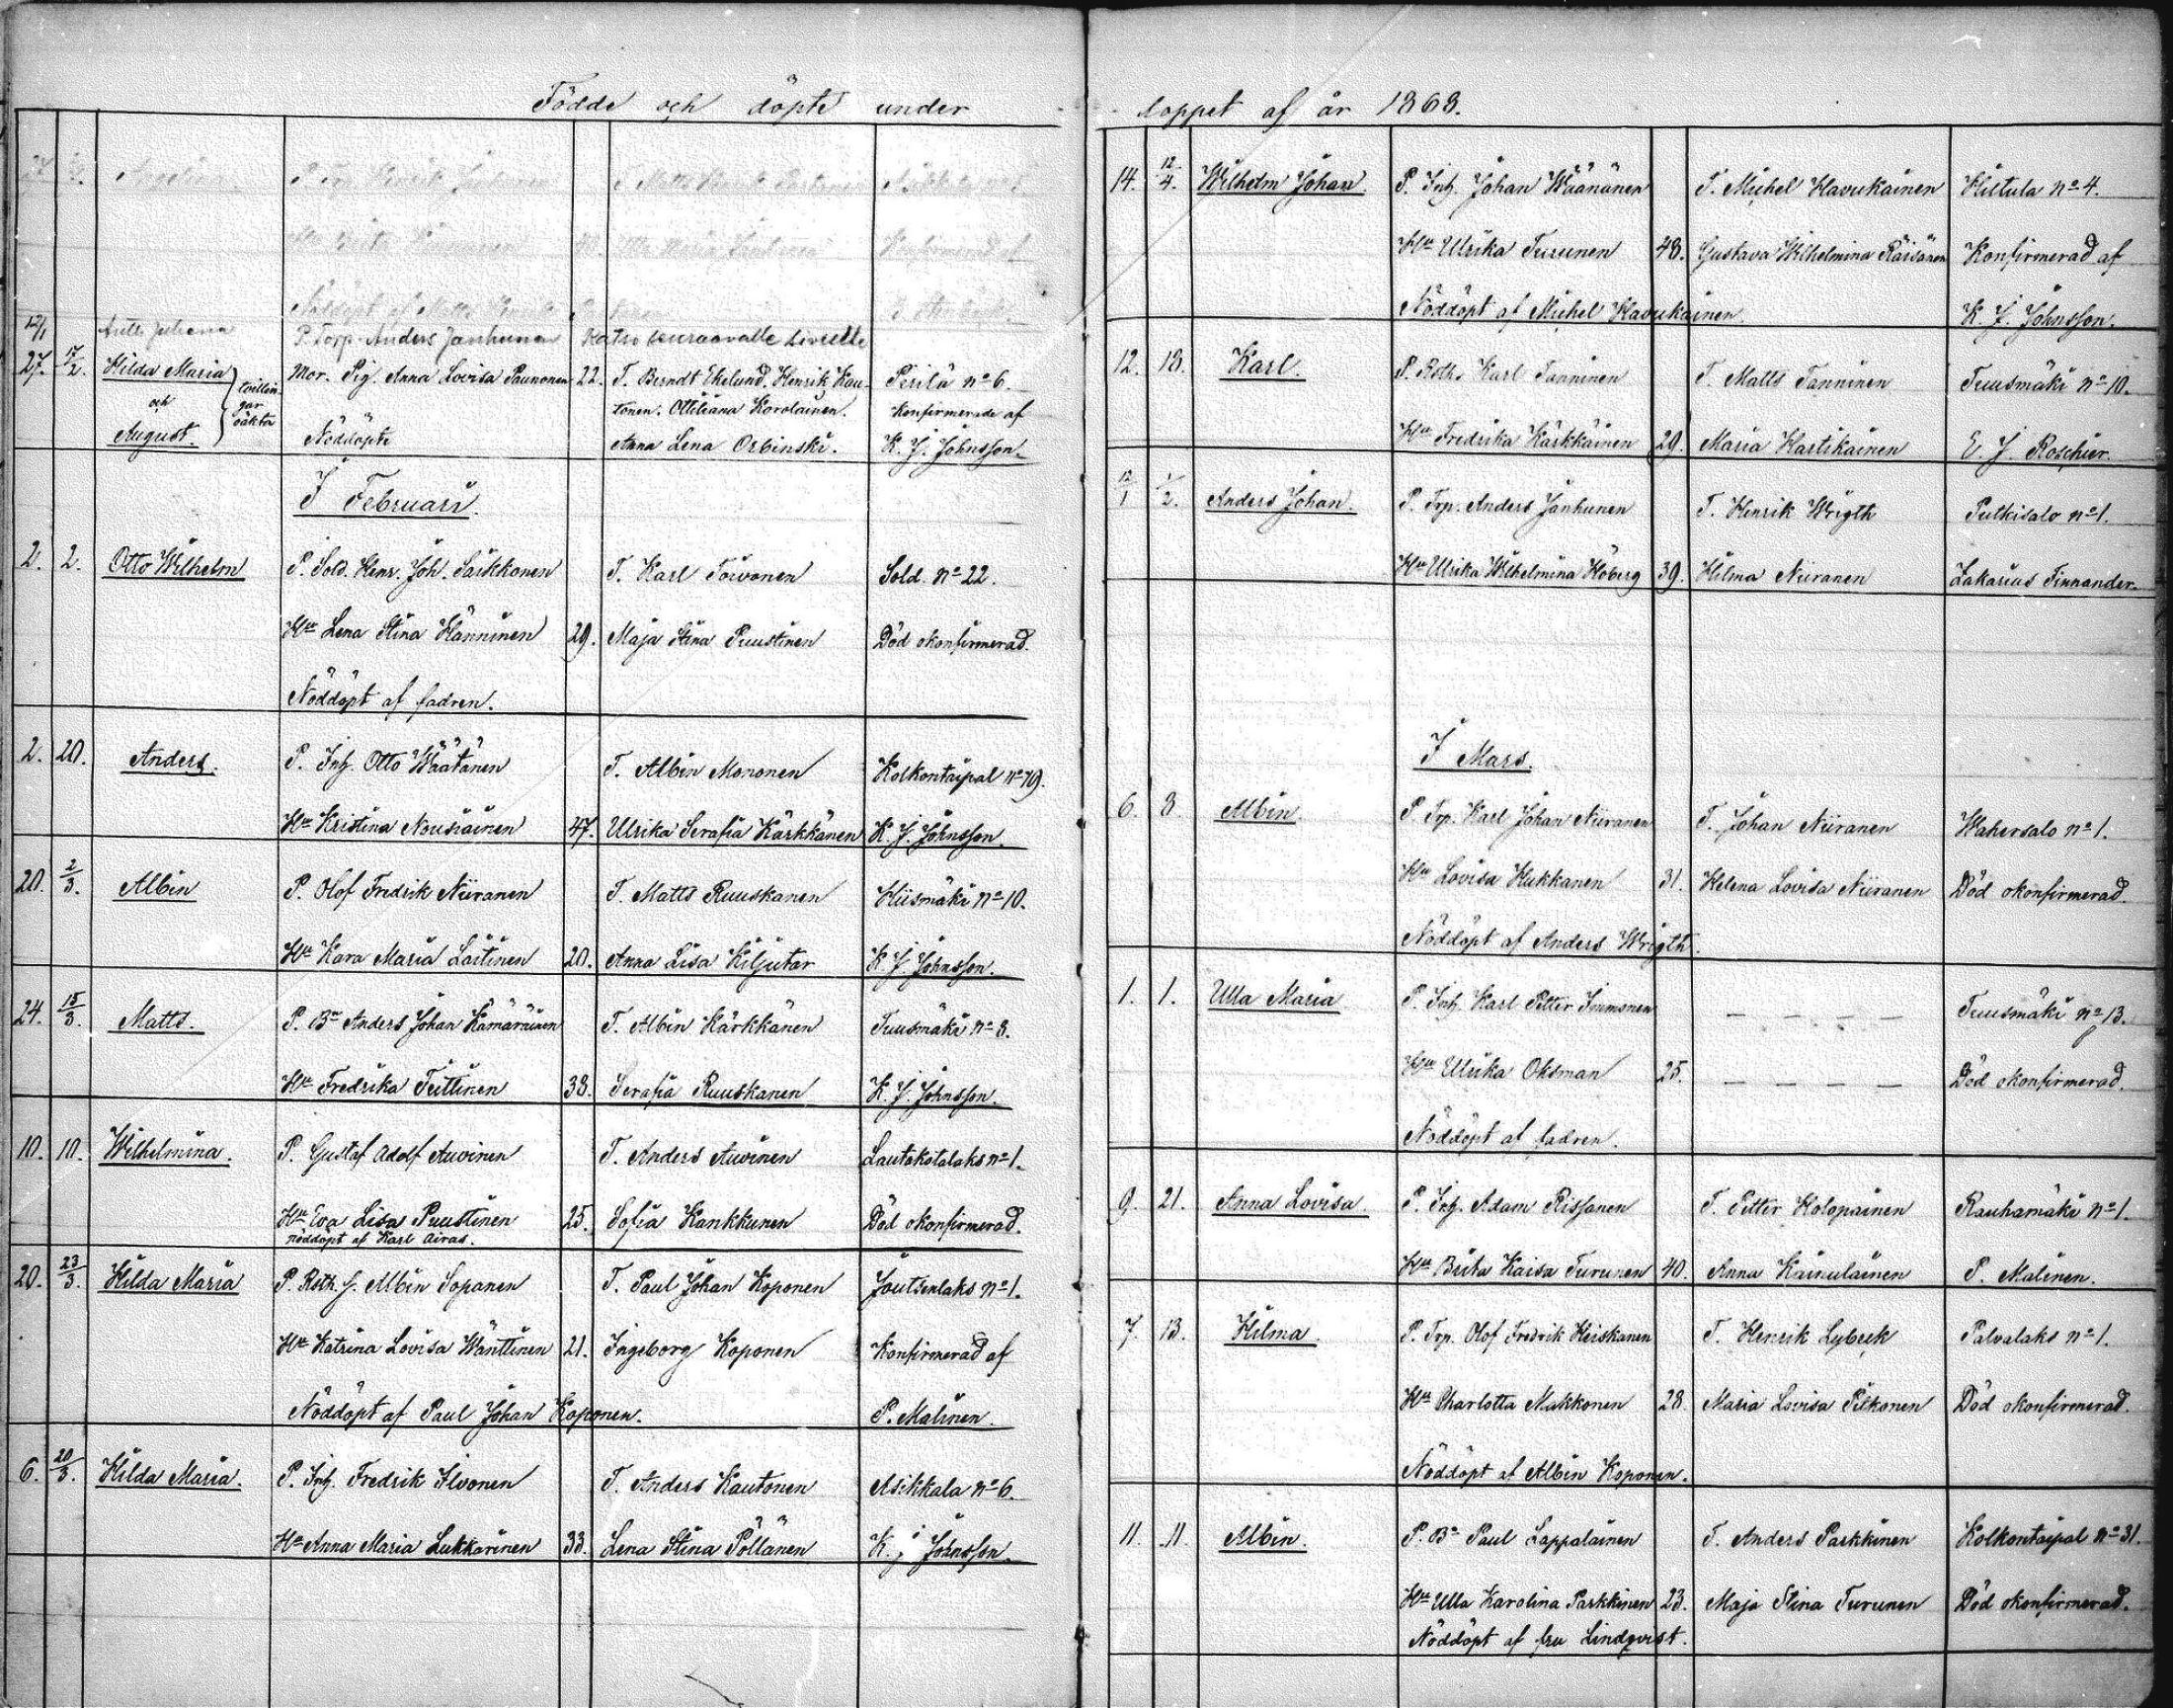 Födde och döpte under
27. Angelina. P. Trp. Henrik
Hu Brita
Nöddöpt af Matts Henrik Konfirmerad af
12/1 Anders Johan P. Torp. Anders Janhunen Katso seuraavalle sivulle
27. 17/2. Hilda Maria Mor. Pig. Anna Lovisa Paunonen 22. T. Berndt Ekelund. Henrik Kau- Perilä no 6.
och tvillingar oäkta tonen. Ottiliana Korolainen. Konfirmerade af
August. Nöddöpte Anna Lena Orbinski. K. J. Johnsson.
I Februari.
2. 2. Otto Wilhelm P. Sold. Henr. Joh. Särkkonen T. Karl Toivonen Sold. no 22.
Hu Lena Stina Hänninen 29. Maja Stina Puustinen Död okonfirmerad.
Nöddöpt af fadren.
2. 20. Anders. P. Inh. Otto Wäätänen T. Albin Mononen Kolkontaipal no 79.
Hu Kristina Nousiainen 47. Ulrika Serafia Kärkkänen K. J. Johnsson.
20. 2/3. Albin P. Olof Fredrik Niiranen T. Matts Ruuskanen Hiismäki no 10.
Hu Kara Maria Laitinen 20. Anna Lisa Kiljutar K. J. Johnsson.
24. 15/3. Matts. P. Bn Anders Johan Kämäräinen T. Albin Kärkkänen Tuusmäki no 8.
Hu Fredrika Teittinen 38. Serafia Ruuskanen K. J. Johnsson.
10. 10. Wilhelmina. P. Gustaf Adolf Auvinen T. Anders Auvinen Lautakotalaks no 1.
Hu Eva Lisa Puustinen 25. Sofia Kankkunen Död okonfirmerad.
nöddöpt af Karl Airas.
20. 23/3. Hilda Maria P. Roth. J. Albin Sopanen T. Paul Johan Koponen Joutsenlaks no 1.
Hu Katrina Lovisa Wänttinen 21. Ingeborg Koponen Konfirmerad af
Nöddöpt af Paul Johan Koponen. P. Malinen.
6. 20/3. Hilda Maria. P. Inh. Fredrik Ilvonen T. Anders Kautonen Asikkala no 6.
Hu Anna Maria Lukkarinen 33. Lena Stina Pöllänen K. J. Johnsson.
loppet af år 1868.
14. 12/4. Wilhelm Johan. P. Inh. Johan Wäänänen T. Michel Havukainen Hiltula no 4.
Hu Ulrika Turunen 48. Gustava Wilhelmina Räisänen Konfirmerad af
Nöddöpt af Michel Havukainen. K. J. Johnsson.
12. 18. Karl. P. Roth. Karl Tanninen T. Matts Tanninen Tuusmäki no 10.
Hu Fredrika Kärkkäinen 29. Maria Hartikainen E. J. Roschier.
12/1 1/2. Anders Johan. P. Trp. Anders Janhunen T. Henrik Wrigth Putkisalo no 1.
Hu Ulrika Wilhelmina Höberg 39. Hilma Niiranen Zakarius Finnander.
I Mars.
6. 8. Albin. P. Trp. Karl Johan Niiranen T. Johan Niiranen Wahersalo no 1.
Hu Lovisa Hukkanen 31. Helena Lovisa Niiranen Död okonfirmerad.
Nöddöpt af Anders Wrigth.
1. 1. Ulla Maria P. Inh. Karl Petter Immonen — — — — Tuusmäki no 13.
Hu Ulrika Oksman 25. — — — — Död okonfirmerad.
Nöddöpt af fadren.
9. 21. Anna Lovisa. P. Inh. Adam Rissanen T. Petter Holopainen Rauhamäki no 1.
Hu Brita Kaisa Turunen 40. Anna Kainulainen P. Malinen.
7. 13. Hilma. P. Trp. Olof Fredrik Heiskanen T. Henrik Lybeck Palvalaks no 1.
Hu Charlotta Makkonen 28. Maria Lovisa Pitkonen Död okonfirmerad.
Nöddöpt af Albin Koponen.
11. 11. Albin. P. Bn Paul Lappalainen T. Anders Parkkinen Kolkontaipal no 31.
Hu Ulla Karolina Parkkinen 23. Maja Stina Turunen Död okonfirmerad.
Nöddöpt af fru Lindqvist.